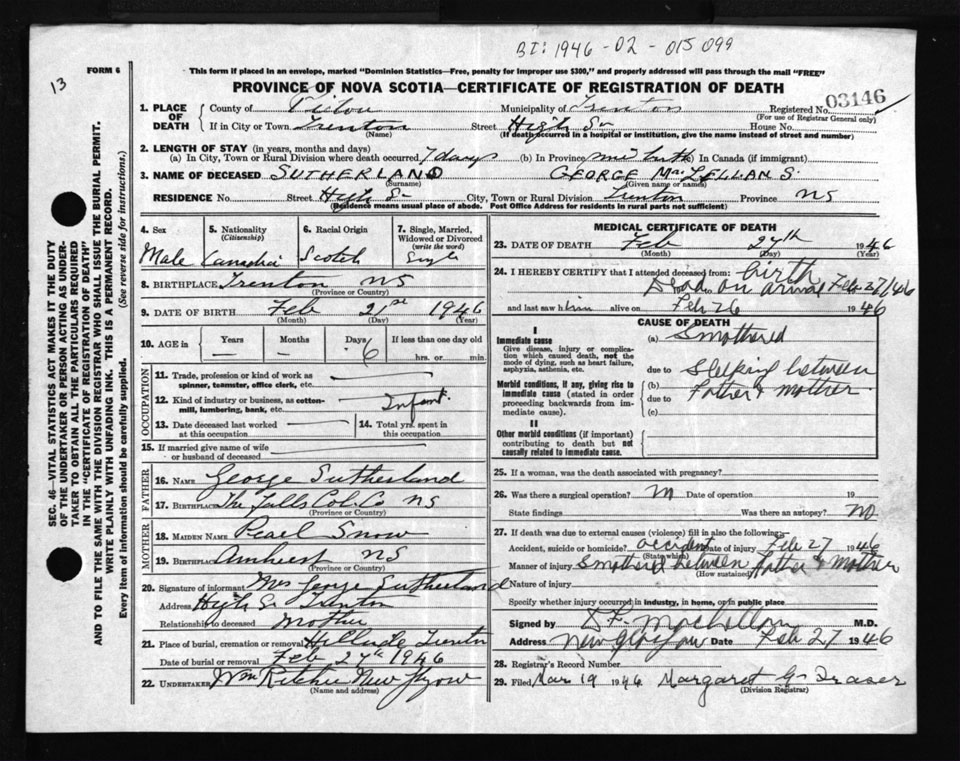 BI: 1946 - 02 - 015 099
13
FORM 6
This form if placed in an envelope, marked "Dominion Statistics—Free, penalty for improper use $300," and properly addressed will pass through the mail "FREE"
PROVINCE OF NOVA SCOTIA—CERTIFICATE OF REGISTRATION OF DEATH
SEC. 46—VITAL STATISTICS ACT MAKES IT THE DUTY
OF THE UNDERTAKER OR PERSON ACTING AS UNDER-
TAKER TO OBTAIN ALL THE PARTICULARS REQUIRED
IN THE "CERTIFICATE OF REGISTRATION OF DEATH"
AND TO FILE THE SAME WITH THE DIVISION REGISTRAR WHO SHALL ISSUE THE BURIAL PERMIT.
WRITE PLAINLY WITH UNFADING INK. THIS IS A PERMANENT RECORD.
Every item of information should be carefully supplied. (See reverse side for instructions.)
1. PLACE OF DEATH County of Pictou Municipality of Trenton Registered No. 03146
(For use of Registrar General only)
If in City or Town Trenton Street High St House No.
(Name) (If death occurred in a hospital or institution, give the name instead of street and number)
2. LENGTH OF STAY (in years, months and days)
(a) In City, Town or Rural Division where death occurred 7 days (b) In Province birth (c) In Canada (if immigrant)
3. NAME OF DECEASED SUTHERLAND GEORGE MacLELLAN S.
(Surname) (Given name or names)
RESIDENCE No. Street High St City, Town or Rural Division Trenton Province NS
(Residence means usual place of abode. Post Office Address for residents in rural parts not sufficient)
4. Sex 5. Nationality (Citizenship) 6. Racial Origin 7. Single, Married, Widowed or Divorced (write the word)
Male Scotch Single
8. BIRTHPLACE Trenton NS
(Province or Country)
9. DATE OF BIRTH Feb 21st 1946
(Month) (Day) (Year)
10. AGE in Years Months Days If less than one day old
— — 6 hrs. or min.
OCCUPATION
11. Trade, profession or kind of work as spinner, teamster, office clerk, etc. —
12. Kind of industry or business, as cotton-mill, lumbering, bank, etc. — Infant
13. Date deceased last worked at this occupation — 14. Total yrs. spent in this occupation
15. If married give name of wife or husband of deceased
FATHER
16. NAME George Sutherland
17. BIRTHPLACE The Falls Col. Co NS
(Province or Country)
MOTHER
18. MAIDEN NAME Pearl Snow
19. BIRTHPLACE Amherst NS
(Province or Country)
20. Signature of informant Mrs George Sutherland
Address High St Trenton
Relationship to deceased Mother
21. Place of burial, cremation or removal Hillside Trenton
Date of burial or removal Feb 27th 1946
22. UNDERTAKER Wm Ritchie New Glasgow
(Name and address)
MEDICAL CERTIFICATE OF DEATH
23. DATE OF DEATH Feb 27th 1946
(Month) (Day) (Year)
24. I HEREBY CERTIFY that I attended deceased from: birth
Dead on arrival Feb 27/46
and last saw him alive on Feb 26 1946
CAUSE OF DEATH
I
Immediate cause
Give disease, injury or complication which caused death, not the mode of dying, such as heart failure, asphyxia, asthenia, etc.
(a) Smothered
due to Sleeping between
Morbid conditions, if any, giving rise to immediate cause (stated in order proceeding backwards from immediate cause).
(b) Father & mother
due to
(c)
II
Other morbid conditions (if important) contributing to death but not causally related to immediate cause.
25. If a woman, was the death associated with pregnancy?
26. Was there a surgical operation? Date of operation 19
State findings Was there an autopsy? NO
27. If death was due to external causes (violence) fill in also the following:
Accident, suicide or homicide? accident Date of injury Feb 27 1946
(State which)
Manner of injury Smothered between father & mother
(How sustained)
Nature of injury
Specify whether injury occurred in industry, in home, or in public place
Signed by M.D.
Address New Glasgow Date Feb 27 1946
28. Registrar's Record Number
29. Filed Mar 19 1946 Margaret G. Fraser
(Division Registrar)